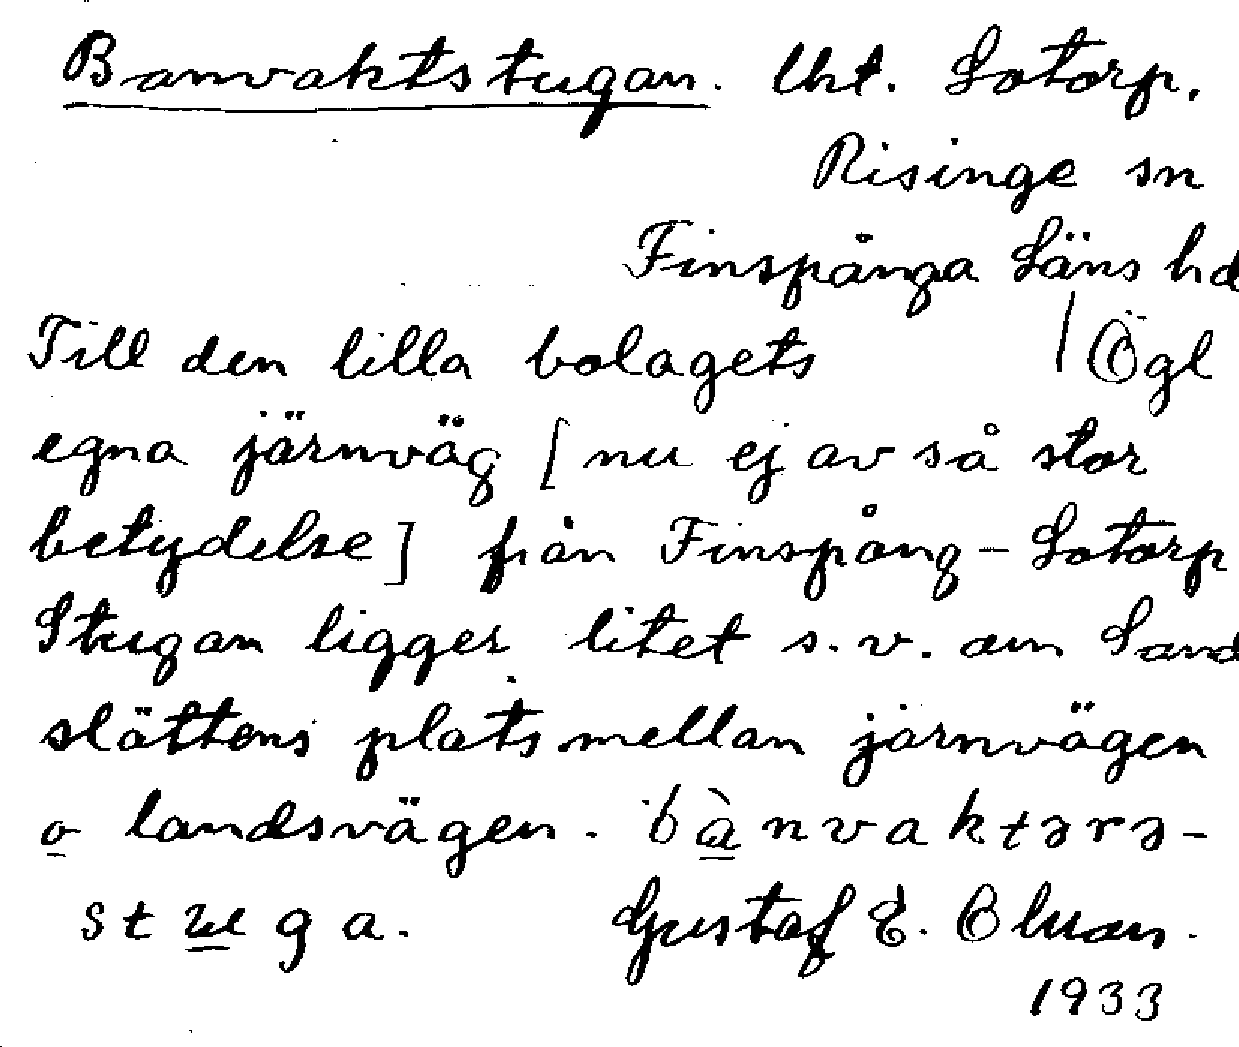 Banvaktstugan. lht. Lotorp.
Risinge sn
Finspånga Läns hd
Till den lilla bolagets / Ögl
egna järnväg [nu ej av så stor
betydelse] från Finspång - Lotorp
Stugan ligger litet s.v. om Sand
slättens plats mellan järnvägen
o landsvägen. bànvaktərə-
stuga. Gustaf E.
1933